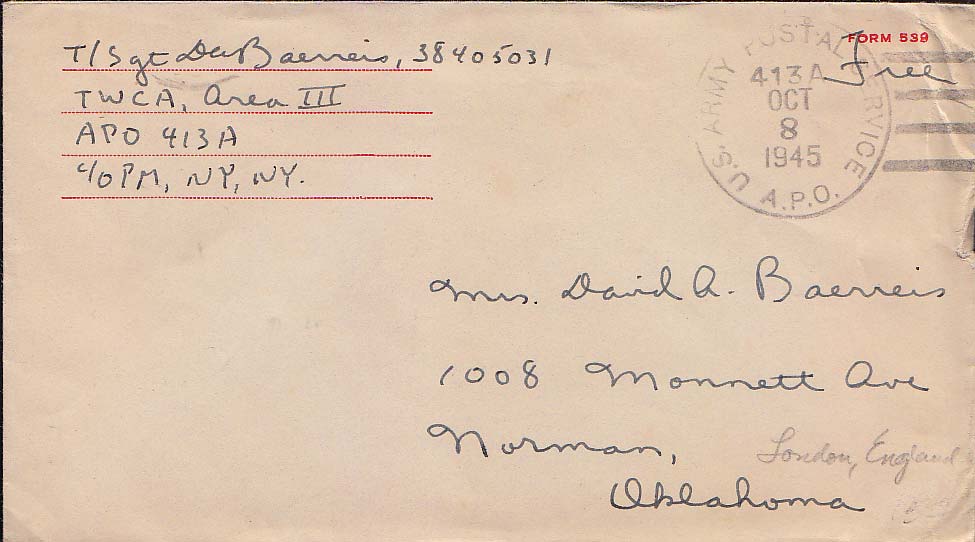 T/Sgt DA Baerreis, 38405031
TWCA, Area III
APO 413A
c/o PM, NY, NY.
FORM 539
Free
U.S. ARMY POSTAL SERVICE
413A
OCT
8
1945
A.P.O.
Mrs. David A. Baerreis
1008 Monnett Ave
Norman,
Oklahoma
London, England